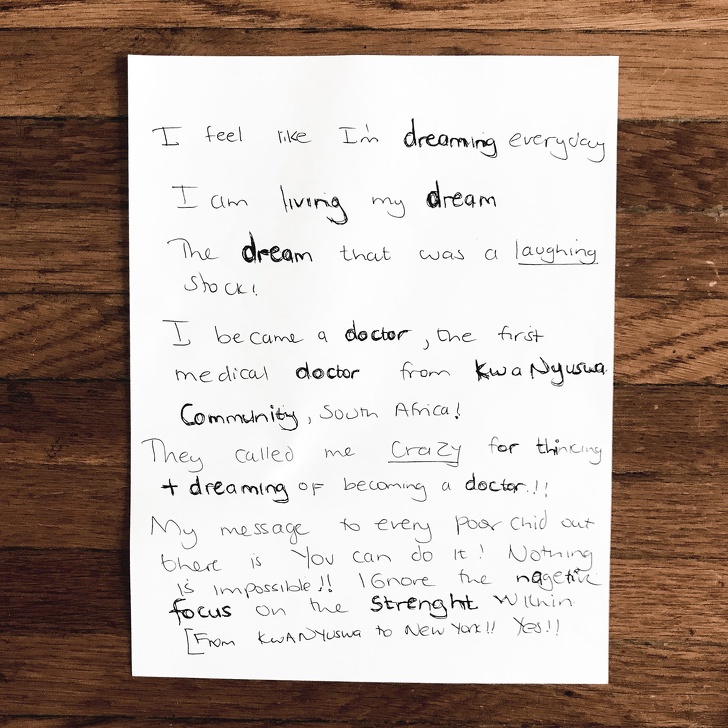 I feel like I'm dreaming everyday
I am living my dream
The dream that was a laughing
stock!
I became a doctor, the first
medical doctor from KwaNyuswa
Community, South Africa!
They called me Crazy for thinking
+ dreaming of becoming a doctor!!
My message to every poor chid out
there is You can do it! Nothing
is impossible!! IGnore the nagetive
focus on the Strenght Within
[From KwANYuswa to New York!! Yes!!